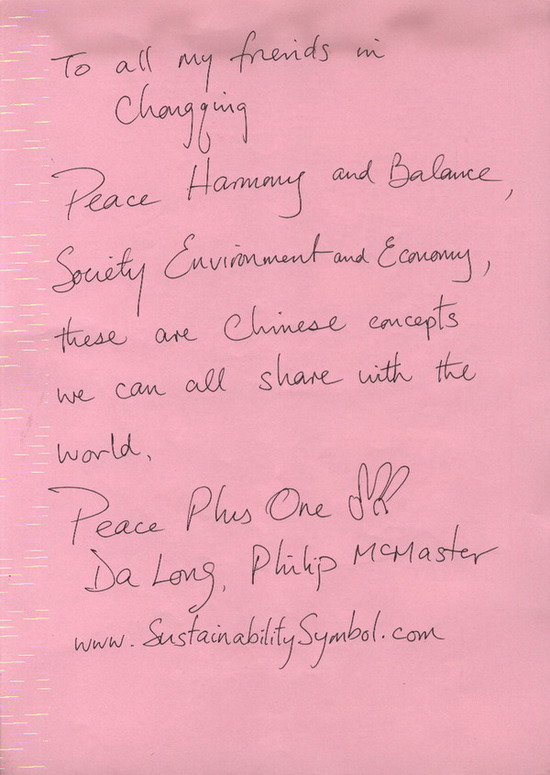 To all my friends in
Chongqing
Peace Harmony and Balance,
Society Environment and Economy,
these are Chinese concepts
we can all share with the
world.
Peace Plus One
Da Long, Philip McMaster
www.SustainabilitySymbol.com